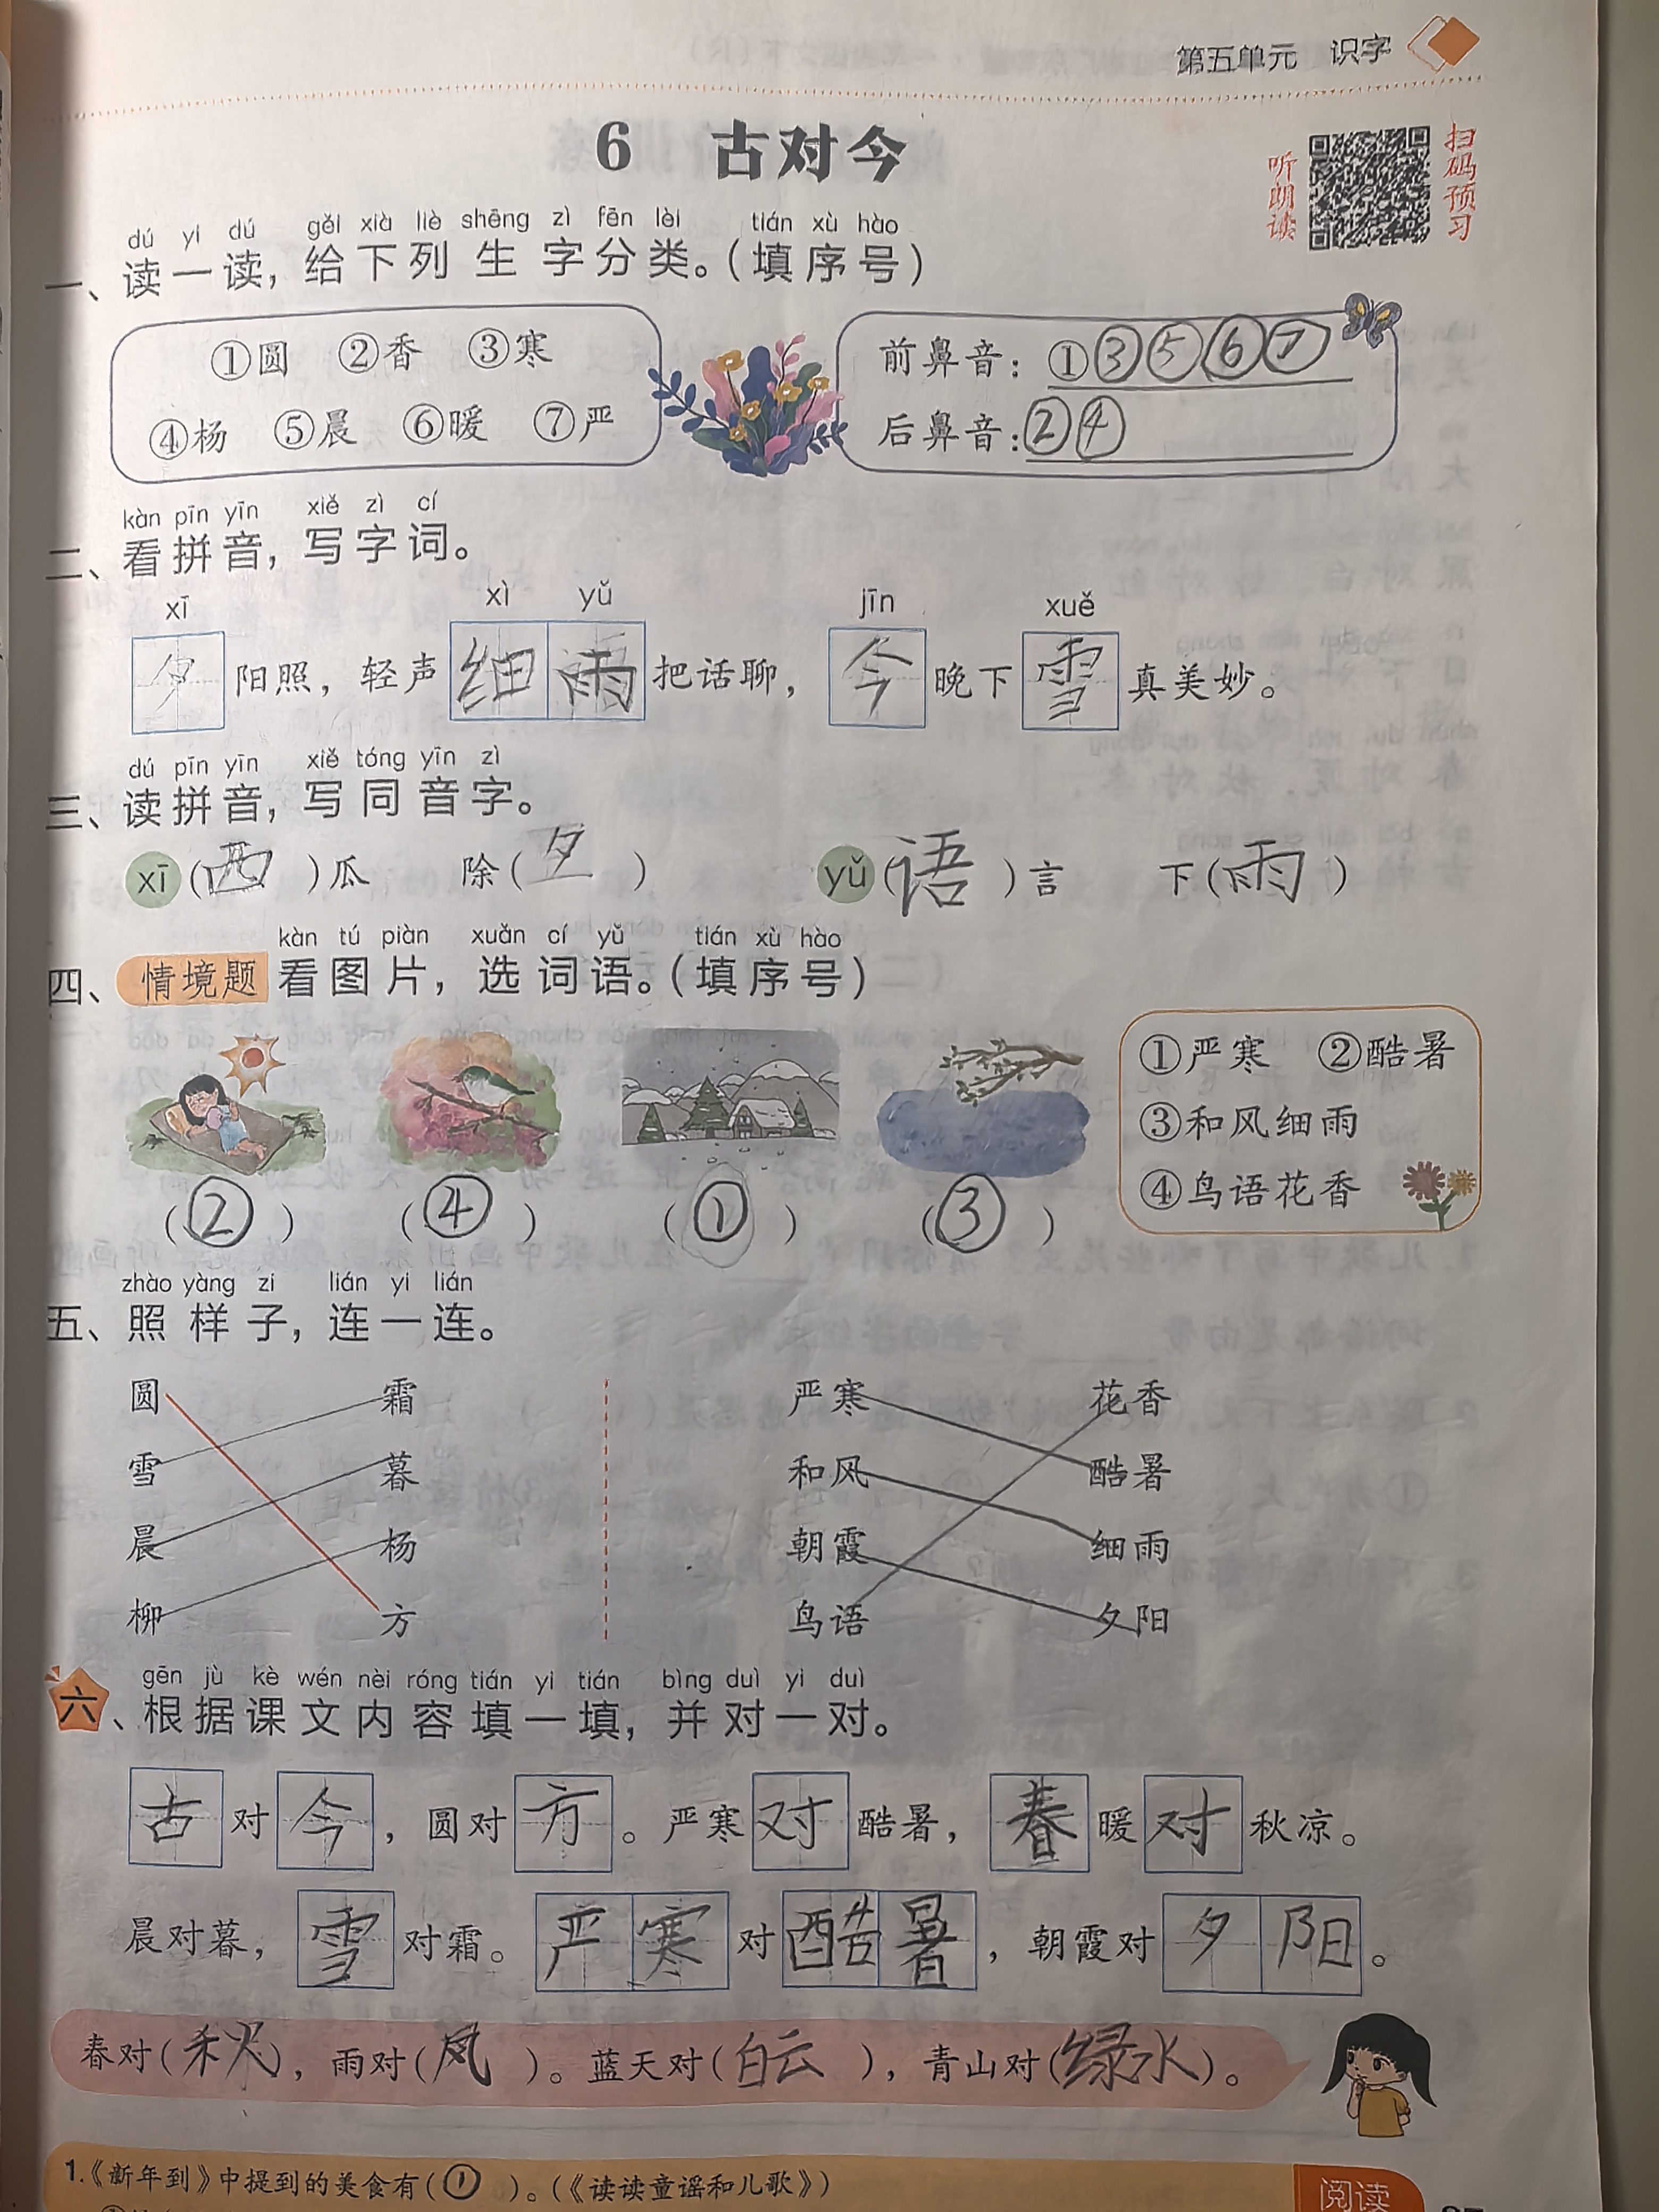 第五单元 识字
6 古对今
听朗读
扫码预习
dú yi dú gěi xià liè shēng zì fēn lèi tián xù hào
一、读一读，给下列生字分类。（填序号）
①圆 ②香 ③寒
④杨 ⑤晨 ⑥暖 ⑦严
前鼻音：①③⑤⑥⑦
后鼻音：②④
kàn pīn yīn xiě zì cí
二、看拼音，写字词。
xī xì yǔ jīn xuě
夕阳照，轻声细雨把话聊，今晚下雪真美妙。
dú pīn yīn xiě tóng yīn zì
三、读拼音，写同音字。
xī（西）瓜 除（夕） yǔ（语）言 下（雨）
kàn tú piàn xuǎn cí yǔ tián xù hào
四、情境题 看图片，选词语。（填序号）
①严寒 ②酷暑
③和风细雨
④鸟语花香
（②） （④） （①） （③）
zhào yàng zi lián yi lián
五、照样子，连一连。
圆 霜 严寒 花香
雪 暮 和风 酷暑
晨 杨 朝霞 细雨
柳 方 鸟语 夕阳
gēn jù kè wén nèi róng tián yi tián bìng duì yi duì
六、根据课文内容填一填，并对一对。
古对今，圆对方。严寒对酷暑，春暖对秋凉。
晨对暮，雪对霜。严寒对酷暑，朝霞对夕阳。
春对（秋），雨对（风）。蓝天对（白云），青山对（绿水）。
1.《新年到》中提到的美食有（①）。（《读读童谣和儿歌》）
阅读